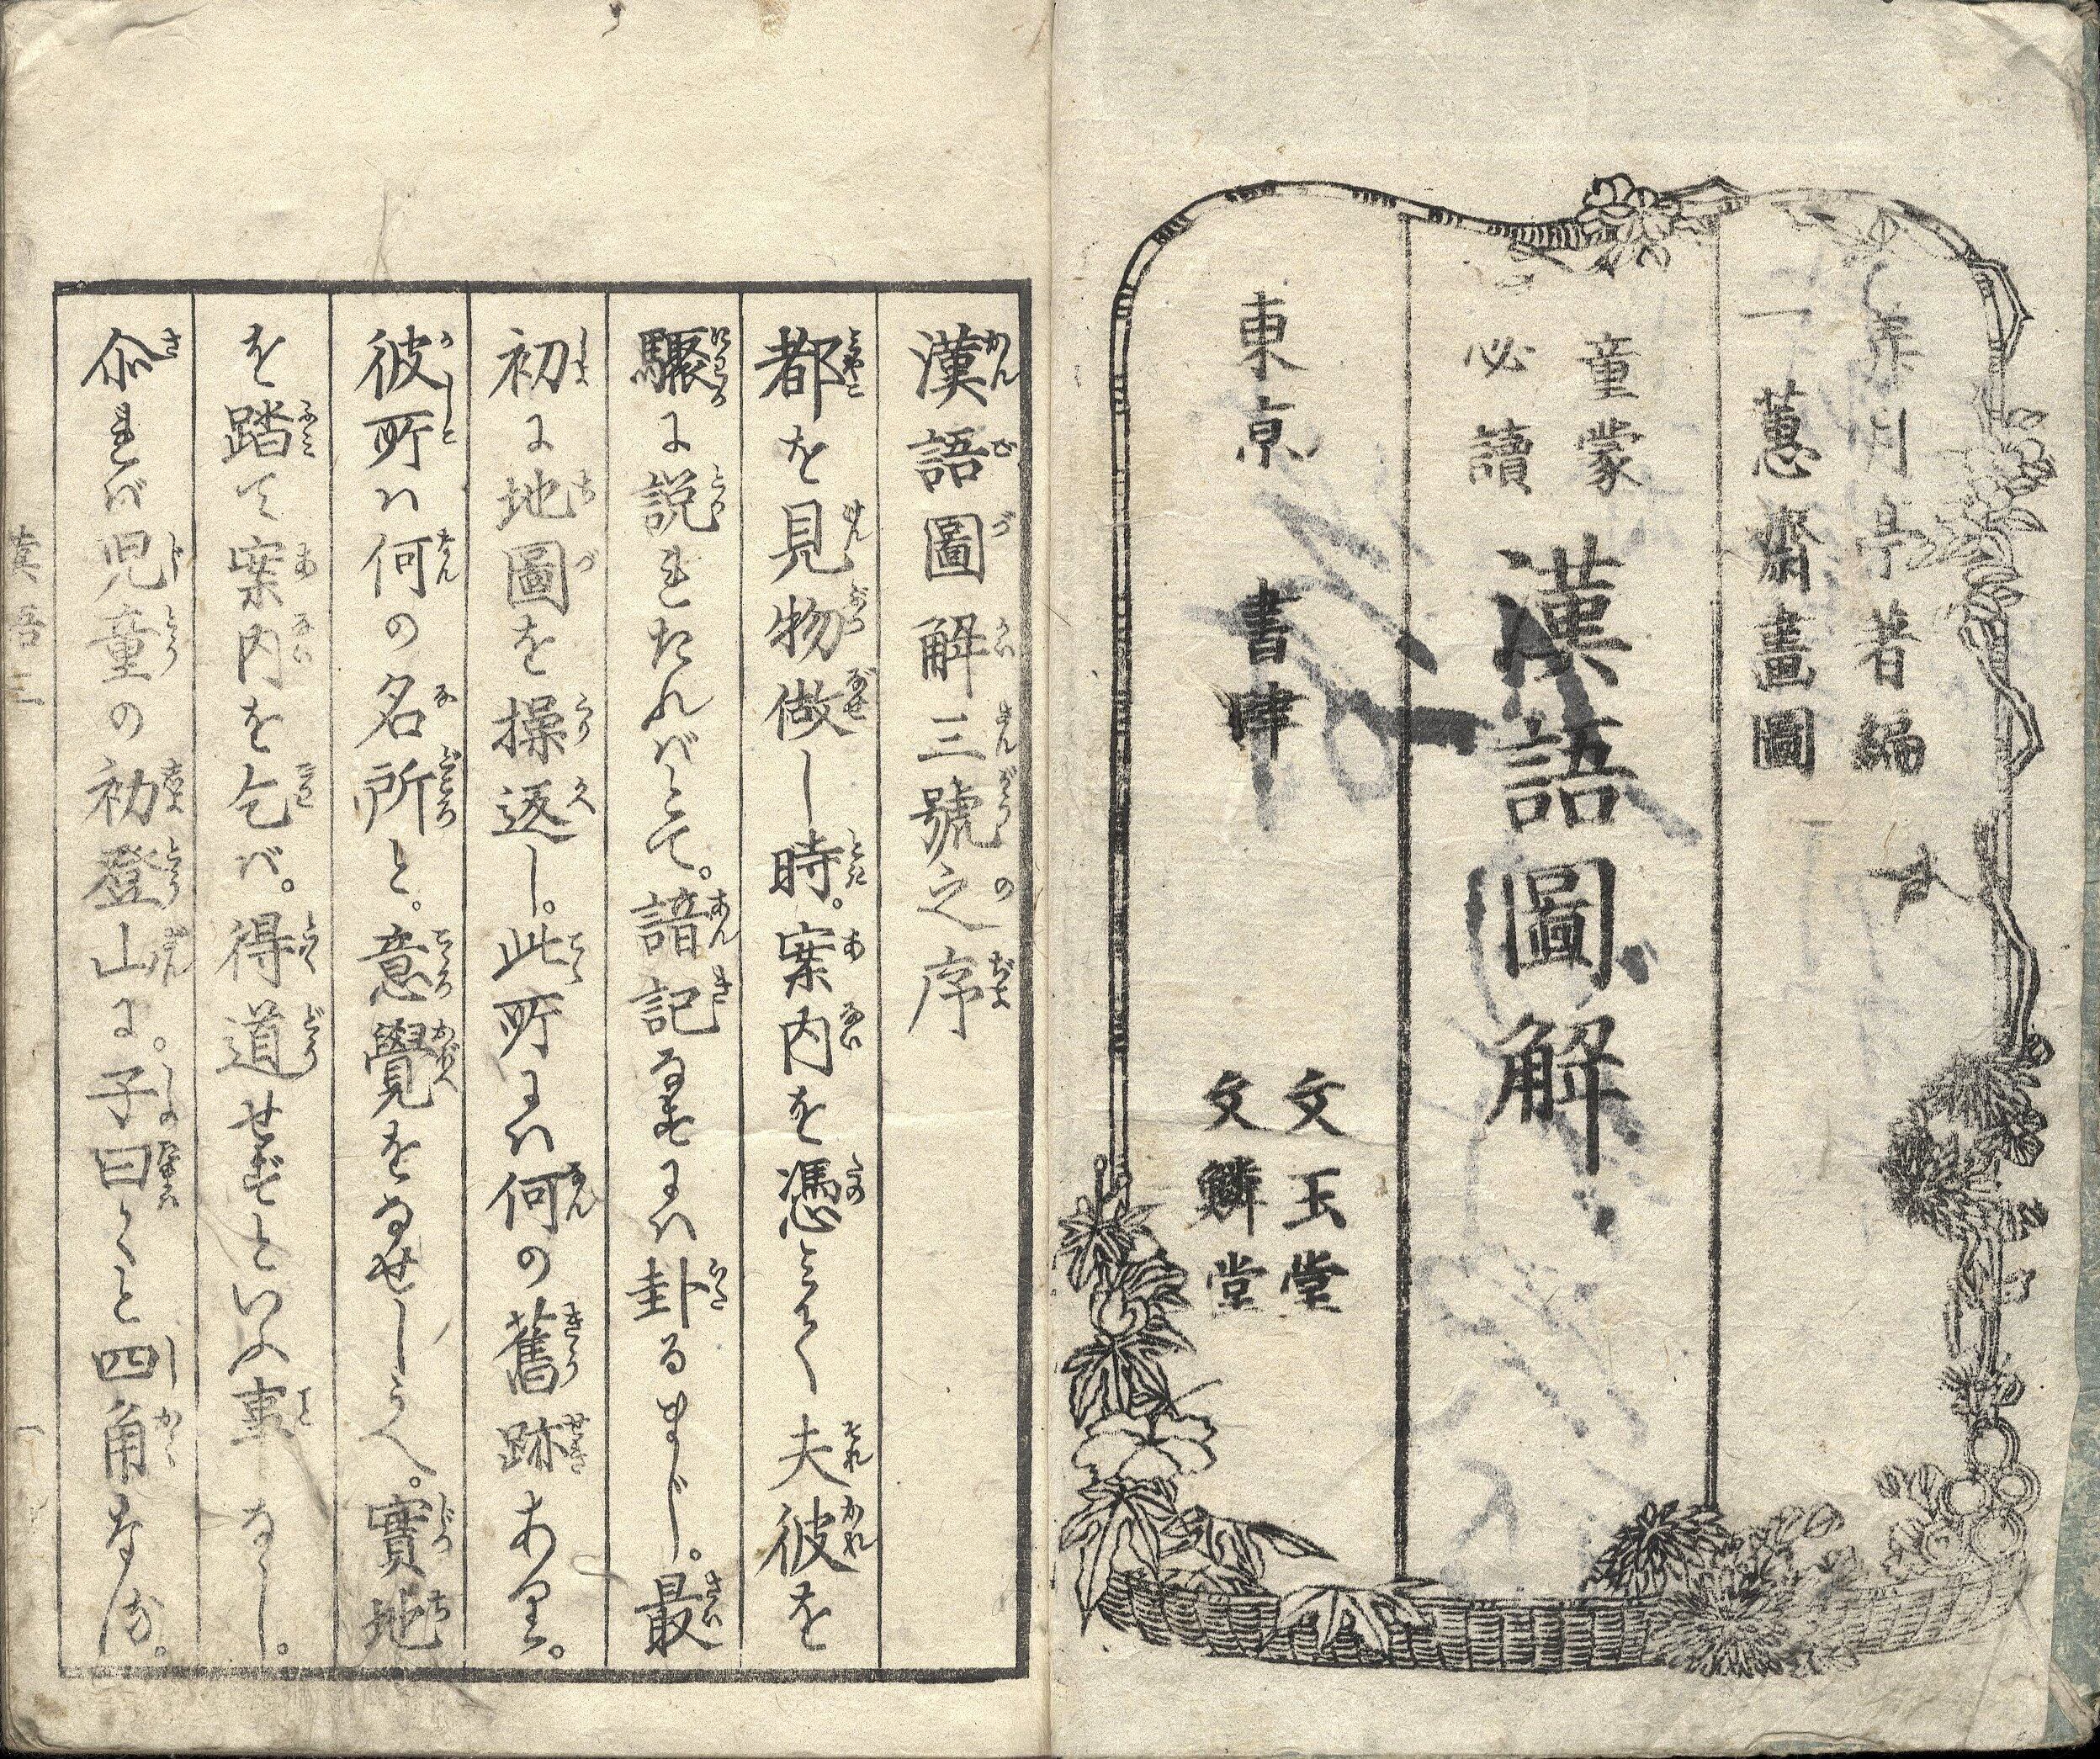 弄月亭著編
一蕙齋畫圖
童蒙
必讀
漢語圖解
東京
書肆
文玉堂
文麟堂
漢語圖解三號之序
都を見物做し時。案内を憑とて夫彼を
驟に説れたればとて。諳記なすには卦るまじ。最
初に地圖を操返し。此所には何の舊跡あり。
彼所は何の名所と。意覺をなせしうへ。實地
を踏て案内を乞ば。得道せずといふ事なし。
尒れば児童の初登山に。子曰くと四角な